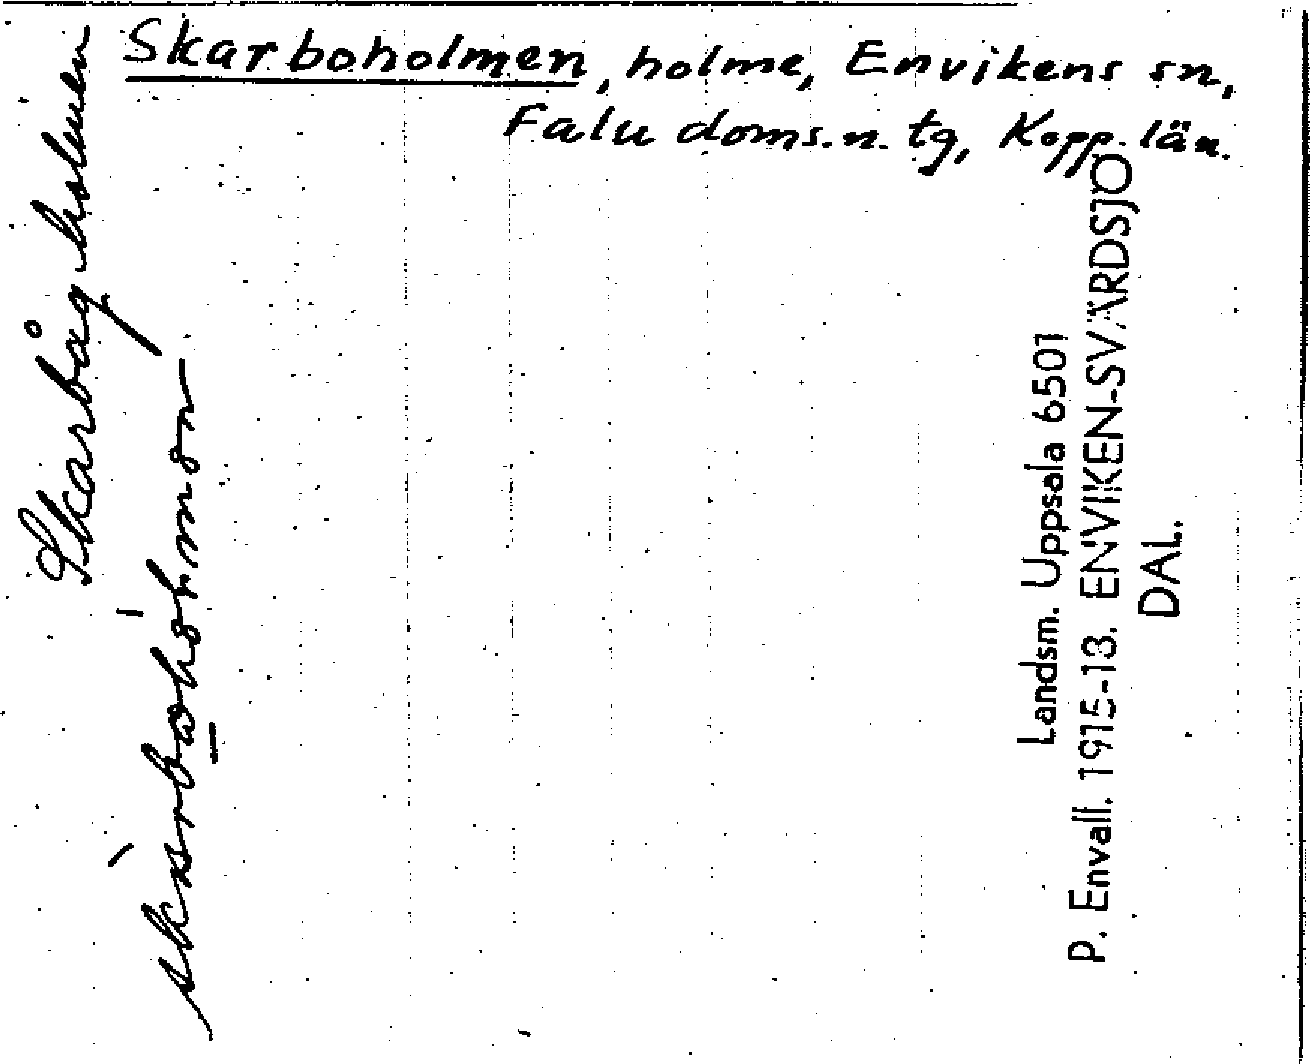 Skarboholmen, holme, Envikens sn,
Falu doms.n. tg, Kopp. län.
Skarbågholmen
Landsm. Uppsala 6501
P. Envall. 1915-13. ENVIKEN-SVÄRDSJÖ
DAL.